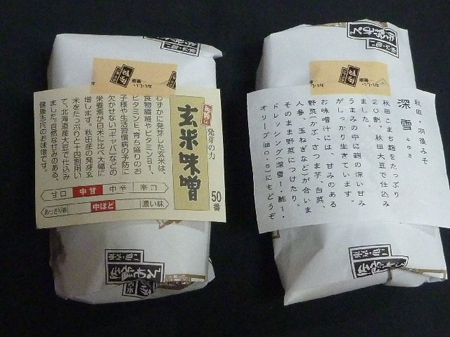 発芽の力
玄米味噌
50番
わずかに発芽した玄米は、
食物繊維やビタミンB1、
ビタミンE、育ち盛りのお
子様や生活習慣病の予防に
欠かせない、ギャバなどの
栄養素が白米に比べ大幅に
増します。秋田産の発芽玄
米をたっぷりと十四割用い
て、北海道産大豆で仕込み
ました。自然な甘みのある、
健康志向のお味噌です。
甘口
中甘
中辛
辛口
あっさり味
中ほど
濃い味
秋田・羽後みそ
深雪
みゆき
秋田こまち麹をたっぷり
20割、秋田大豆で仕込み
うまみの中に麹の深い甘み
がしっかり生きています。
お味噌汁には、甘みのある
野菜(かぶ、さつま芋、白菜、
人参、玉ねぎなど)が合いま
そのまま野菜につけたり、
ドレッシング(深雪1:酢1:
オリーブ油0.8)にもどうぞ